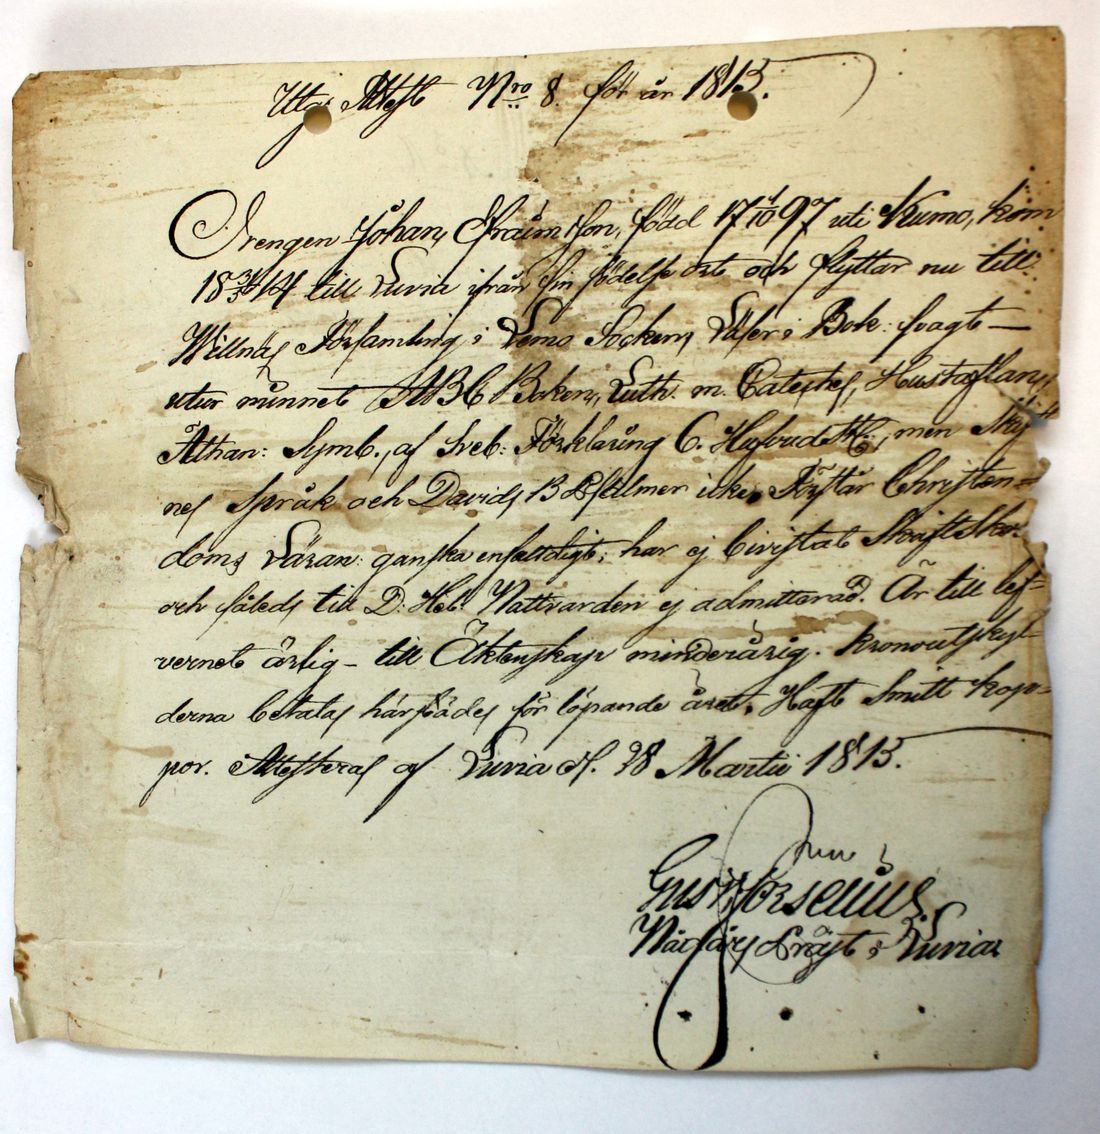 Utg: Attest Nro 8. för år 1815.
Drengen Johan Efraimsson, född 17 1/10 97 uti Kumo, kom
18 31/3 14 till Luvia ifrån sin födelse ort och flyttar nu till
Willnäs Församling i Lemo Socken, Läser i Bok: svagt —
utur minnet ABC Boken, Luth. m. Cateches, Hustaflan,
Athan: Symb., af Sveb: Förklaring C. Hufvud St:, men
nes Språk och Davids B Psalmer icke, Förstår Christen-
doms Läran: ganska enfaldigt; har ej bivistat Skriftskol.
och således till D: Hel: Nattvarden ej admitterad. Är till lef-
vernet ärlig — till Äktenskap minderårig. Kronoutskyl-
derna betalas härstädes för löpande året, Haft Smitt kop-
por. Attesteras af Luvia d. 28 Martii 1815.
Gust:
Nådårs Präst i Luvia